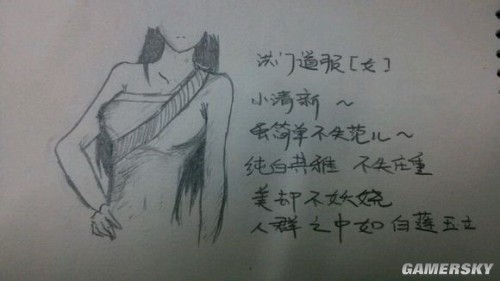 洪门道服[女]
小清新~
虽简单不失范儿~
纯白典雅 不失庄重
美却不妖娆
人群之中如白莲玉立
GAMERSKY